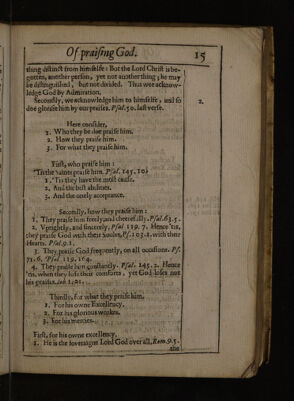 Of praising God.
15
thing distinct from himselfe: But the Lord Christ is be-
gotten, another person, yet not another thing; he may
be distinguished, but not divided. Thus wee acknow-
ledge God by Admiration.
Secondly, we acknowledge him to himselfe; and so
2.
doe glorifie him by our praises. Psal. 50. last verse.
Here consider,
1. Who they be doe praise him.
2. How they praise him.
3. For what they praise him.
First, who praise him:
'Tis the Saints praise him. Psal. 145. 10.
1. 'Tis they have the most cause.
2. And the best abilities.
3. And the onely acceptance.
Secondly, how they praise him:
1. They praise him freely, and cheerefully. Psal. 63. 5.
2. Uprightly, and sincerely. Psal 119. 7. Hence 'tis,
they praise God with their Soules, Ps. 103. 1. with their
Hearts. Psal. 9. 1.
3. They praise God frequently, on all occasions. Ps.
71. 6. Psal 119. 164.
4. They praise him constantly. Psal. 145. 2. Hence
'tis, when they lose their comforts, yet God loses not
his praises. Job 1. 21.
Thirdly, for what they praise him.
1. For his owne Excellency.
2. For his glorious workes.
3. For his mercies.
First, for his owne excellency.
1. He is the soveraigne Lord God over all, Rom. 9. 5.
the